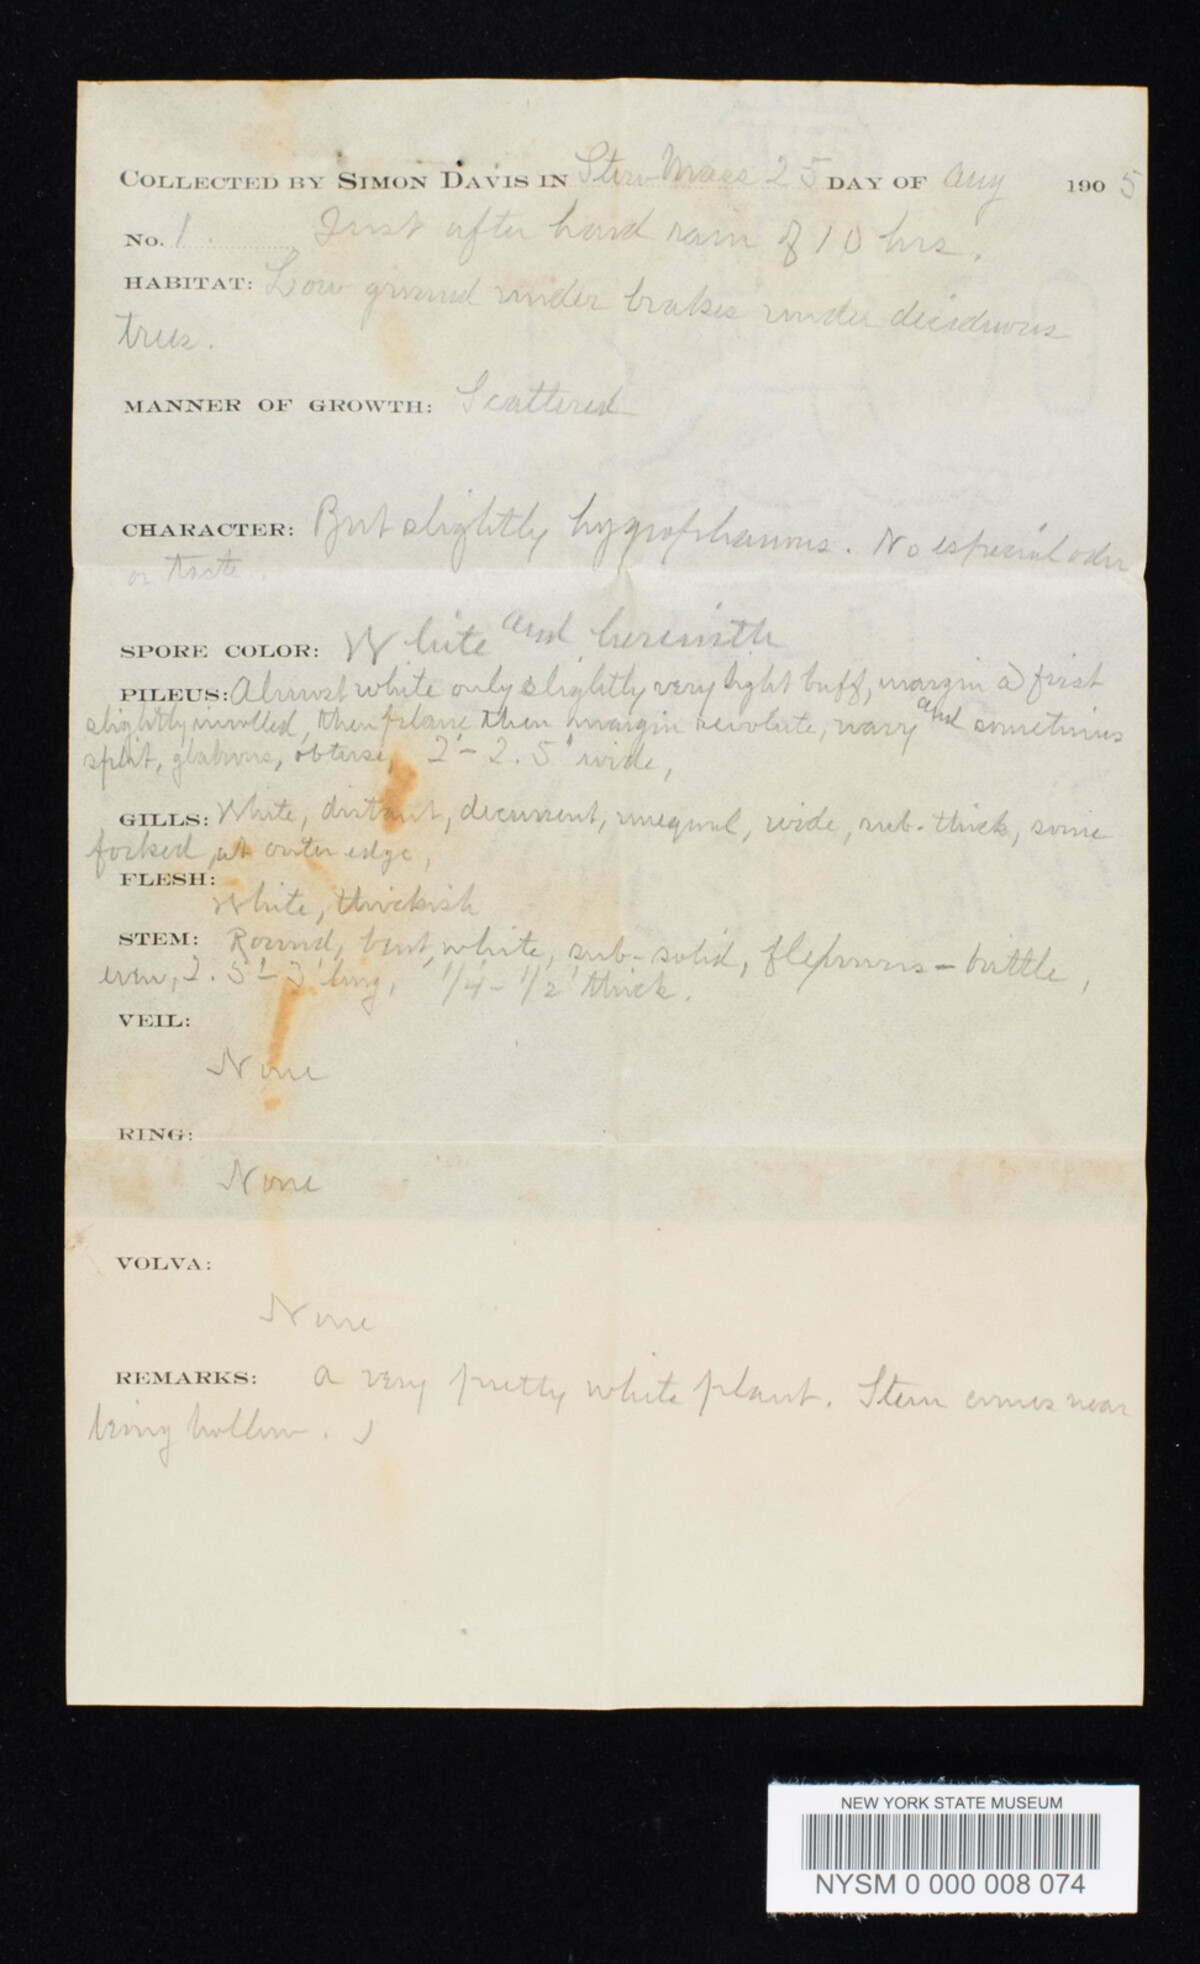 COLLECTED BY SIMON DAVIS IN Stow Mass 25 DAY OF Aug 1905
No. 1. Just after hard rain of 10 hrs.
HABITAT: Low ground under brakes under deciduous
trees.
MANNER OF GROWTH: Scattered
CHARACTER: But slightly hygrophanous. No especial odor
or taste.
SPORE COLOR: White and herewith
PILEUS: Almost white only slightly very light buff, margin at first
slightly inrolled, then plane then margin revolute, wavy and sometimes
split, glabrous, obtuse, 2'-2.5' wide,
GILLS: White, distant, decurrent, unequal, wide, sub-thick, some
forked at outer edge,
FLESH:
White, thickish
STEM: Round, bent, white, sub-solid, - brittle,
even, 2.5'-3' long, 1/4'-1/2' thick.
VEIL:
None
RING:
None
VOLVA:
None
REMARKS: A very pretty white plant. Stem comes near
being hollow.
NEW YORK STATE MUSEUM
NYSM 0 000 008 074